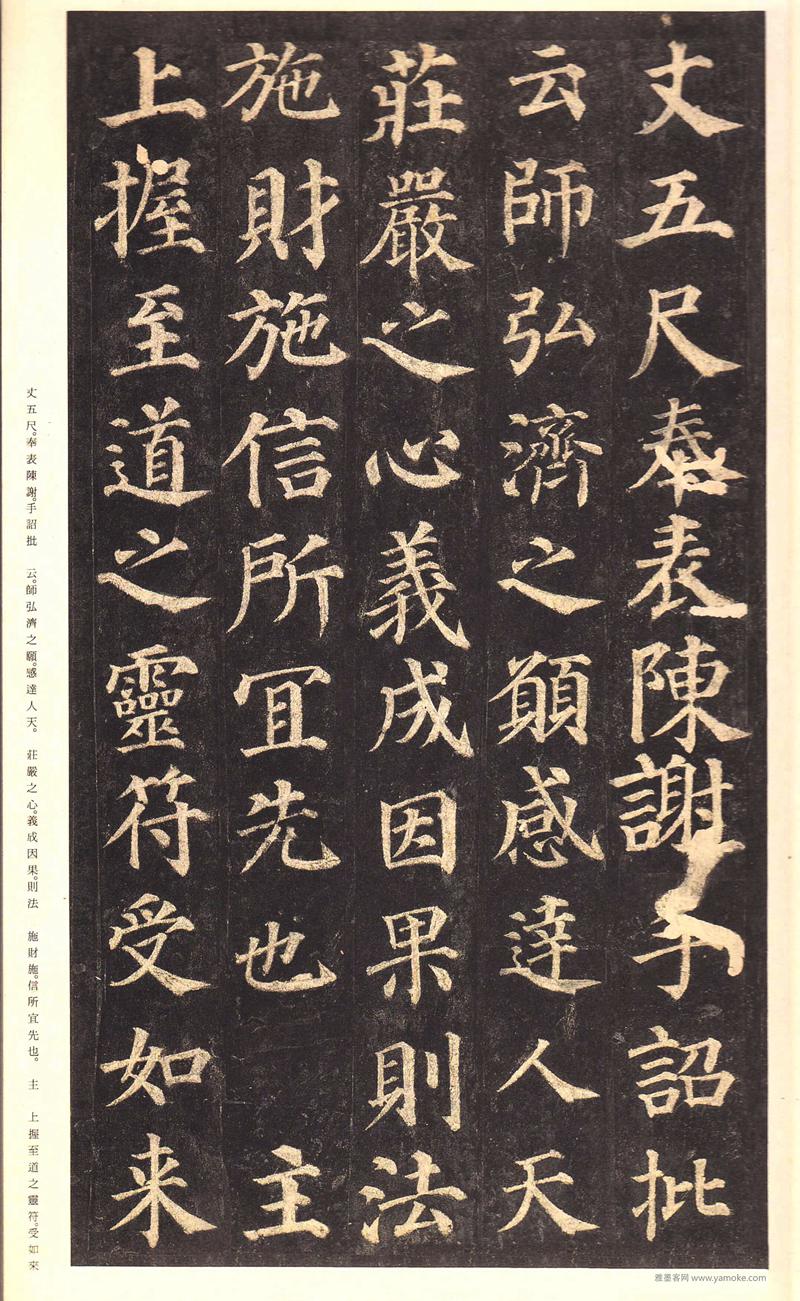 丈五尺奉表陳謝手詔批
云師弘濟之願感達人天
莊嚴之心義成因果則法
施財施信所宜先也　主
上握至道之靈符受如来
丈五尺。奉表陳謝。手詔批　云。師弘濟之願。感達人天。　莊嚴之心。義成因果。則法　施財施。信所宜先也。　主　上握至道之靈符。受如來
雅墨客网 www.yamoke.com